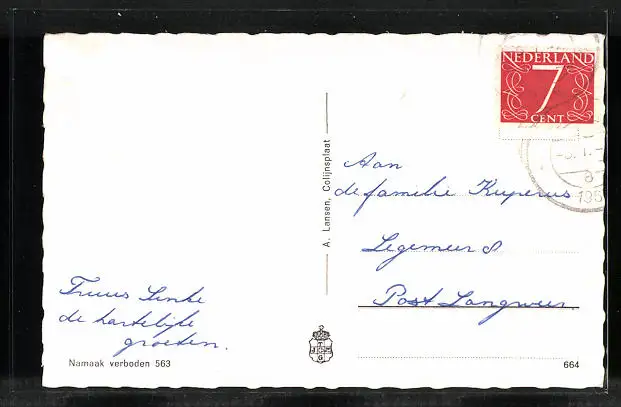 NEDERLAND
7
CENT
196
A. Lansen, Colijnsplaat
Aan
de familie Kuperus
Legemeer 8
Post Langweer.
Truus
de hartelijke
groeten.
Namaak verboden 563
664